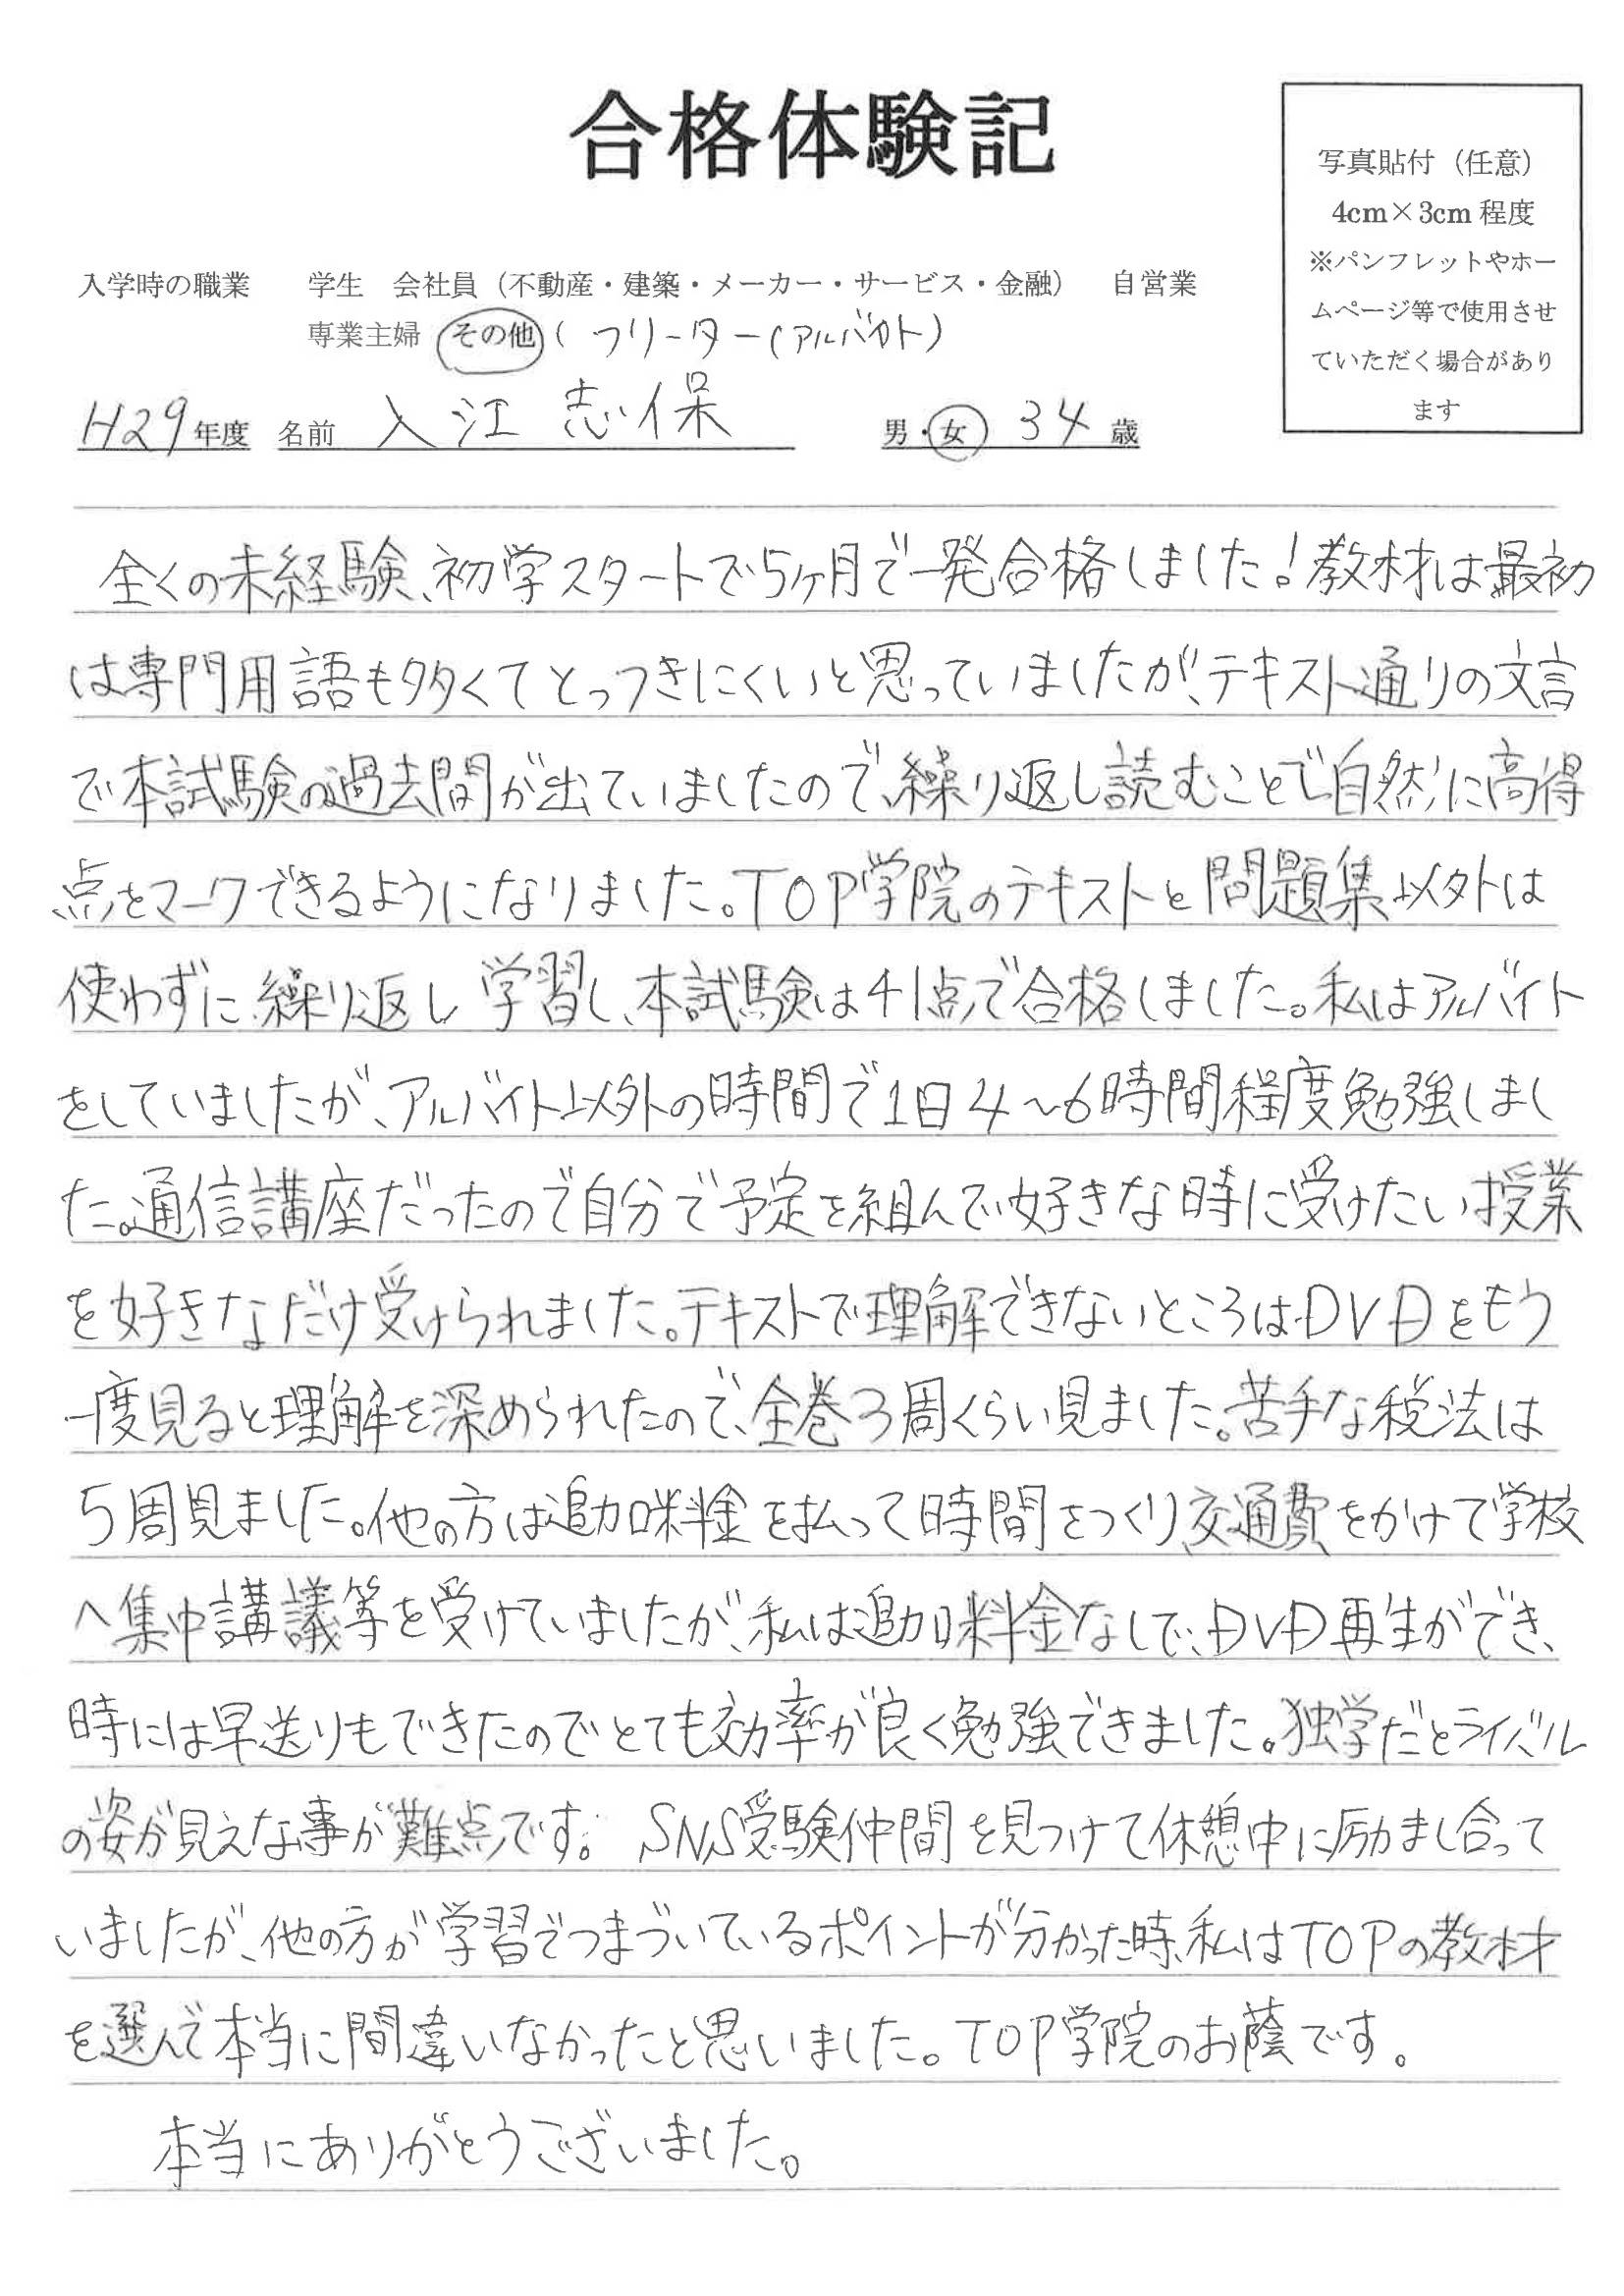 合格体験記
写真貼付（任意）
4cm×3cm 程度
※パンフレットやホー
ムページ等で使用させ
ていただく場合があり
ます
入学時の職業　学生　会社員（不動産・建築・メーカー・サービス・金融）　自営業
専業主婦　その他（フリーター（アルバイト）
H29年度　名前　入江 志保　男・女　34歳
全くの未経験、初学スタートで5ヶ月で一発合格しました！教材は最初
は専門用語も多くてとっつきにくいと思っていましたが、テキスト通りの文言
で本試験の過去問が出ていましたので、繰り返し読むことで自然に高得
点をマークできるようになりました。TOP学院のテキストと問題集以外は
使わずに、繰り返し学習し、本試験は41点で合格しました。私はアルバイト
をしていましたが、アルバイト以外の時間で1日4～6時間程度勉強しまし
た。通信講座だったので自分で予定を組んで好きな時に受けたい授業
を好きなだけ受けられました。テキストで理解できないところはDVDをもう
一度見ると理解を深められたので、全巻3周くらい見ました。苦手な税法は
5周見ました。他の方は追加料金を払って時間をつくり、交通費をかけて学校
へ集中講議等を受けていましたが、私は追加料金なしで、DVD再生ができ、
時には早送りもできたのでとても効率が良く勉強できました。独学だとライバル
の姿が見えな事が難点です。SNS受験仲間を見つけて休憩中に励まし合って
いましたが、他の方が学習でつまづいているポイントが分かった時、私はTOPの教材
を選んで本当に間違いなかったと思いました。TOP学院のお蔭です。
本当にありがとうございました。